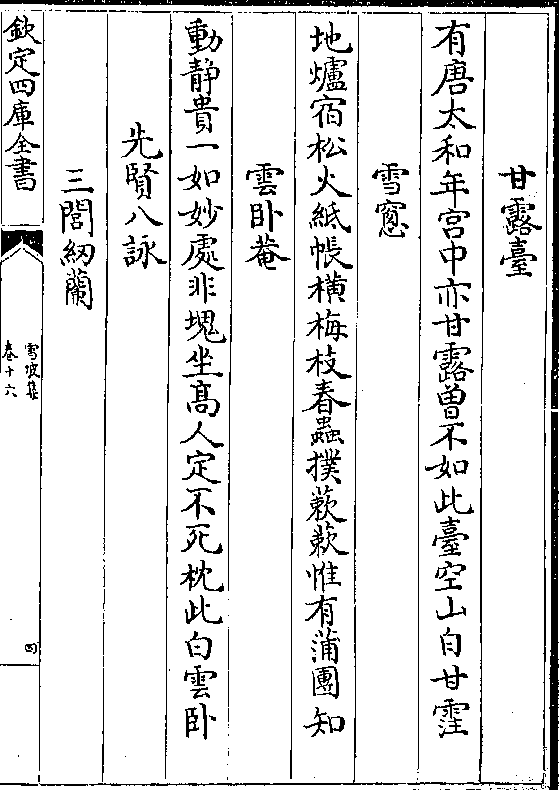 甘露臺
有唐太和年宫中亦甘露曽不如此臺空山自甘霔
雪窓
地爐宿松火紙帳横梅枝春蟲撲蔌蔌惟有蒲團知
雲卧菴
動静貴一如妙處非塊坐髙人定不死枕此白雲卧
先賢八詠
三閭紉蘭
欽定四庫全書
雪坡集
卷十六
四